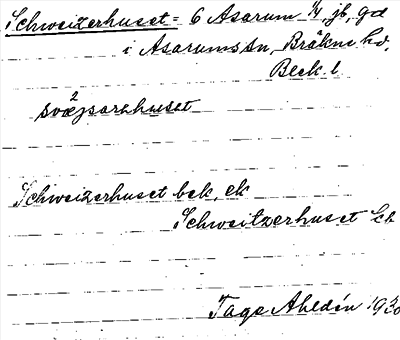 Schweizerhuset = 6 Asarum 1/4 jb, gd
i Asarums sn, Bräkne hd.
Blek. l
svä²jsarahuset
Schweizerhuset bek, ek
Schweitzerhuset
Tage Ahldén 1930